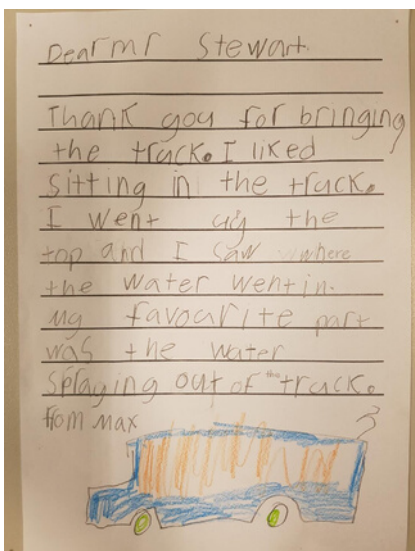 Dear mr Stewart.
Thank you for bringing
the truck. I liked
sitting in the truck.
I went up the
top and I saw where
the water went in.
my favourite part
was the water
spraying out of the truck.
from max